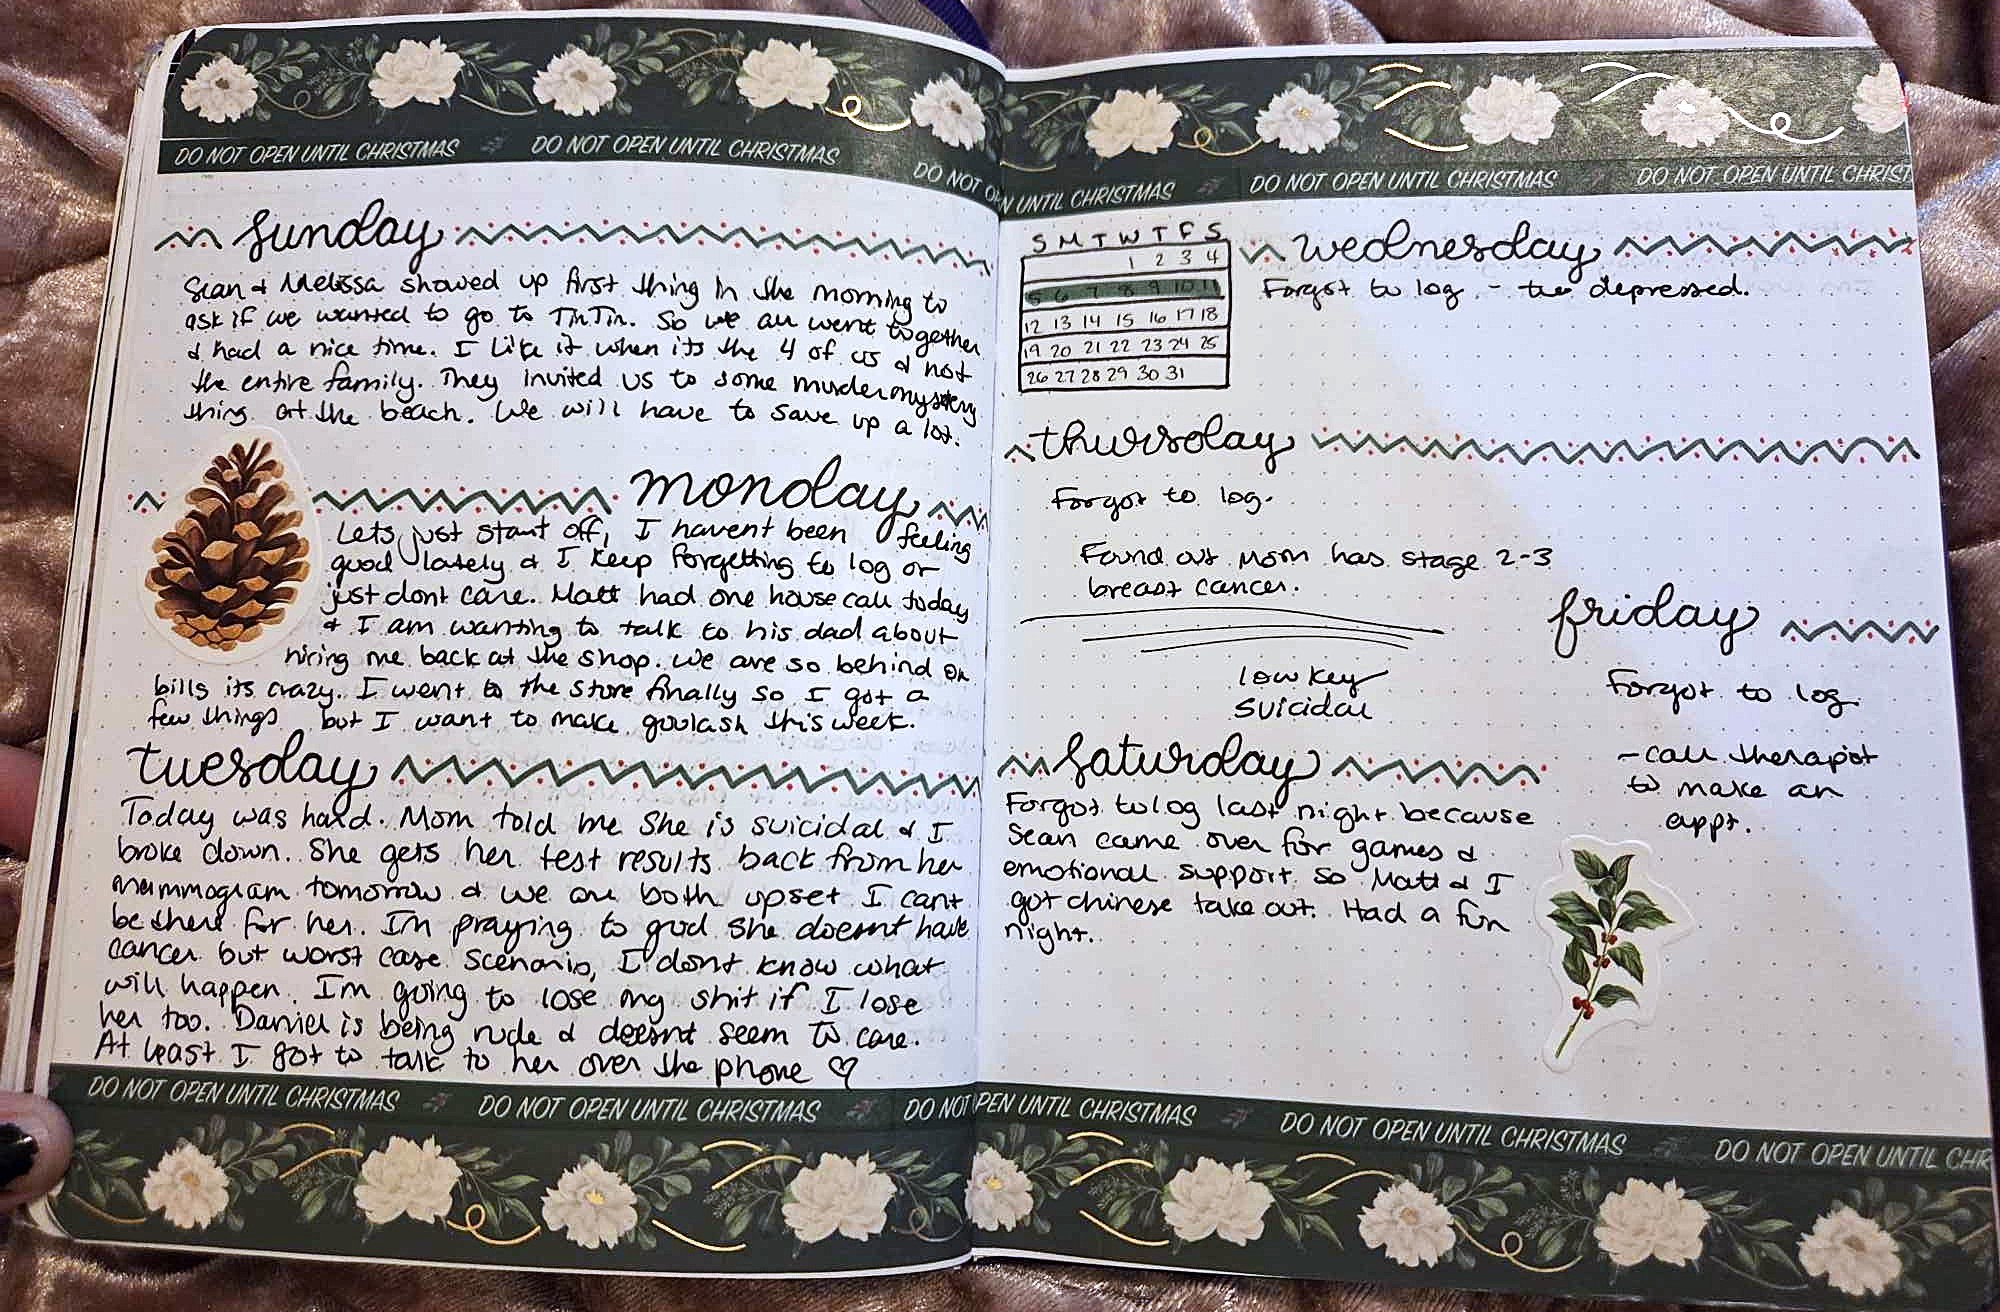 DO NOT OPEN UNTIL CHRISTMAS DO NOT OPEN UNTIL CHRISTMAS DO NOT OPEN UNTIL CHRISTMAS DO NOT OPEN UNTIL CHRISTMAS DO NOT OPEN UNTIL CHRIST
sunday
Sean & Melissa showed up first thing in the morning to
ask if we wanted to go to TinTin. So we all went together
& had a nice time. I like it when its the 4 of us & not
the entire family. They invited us to some murder mystery
thing at the beach. We will have to save up a lot.
monday
Lets just start off, I havent been feeling
good lately & I keep forgetting to log or
just dont care. Matt had one house call today
& I am wanting to talk to his dad about
hiring me back at the shop. We are so behind on
bills its crazy. I went to the store finally so I got a
few things but I want to make goulash this week.
tuesday
Today was hard. Mom told me she is suicidal & I
broke down. She gets her test results back from her
mammogram tomorrow & we are both upset I cant
be there for her. Im praying to god she doesnt have
cancer but worst case scenario, I dont know what
will happen. Im going to lose my shit if I lose
her too. Daniel is being rude & doesnt seem to care.
At least I got to talk to her over the phone ♡
S M T W T F S
1 2 3 4
5 6 7 8 9 10 11
12 13 14 15 16 17 18
19 20 21 22 23 24 25
26 27 28 29 30 31
wednesday
Forgot to log - too depressed.
thursday
Forgot to log.
Found out Mom has stage 2-3
breast cancer.
low key
suicidal
friday
Forgot to log.
- call therapist
to make an
appt.
saturday
Forgot to log last night because
Sean came over for games &
emotional support. So Matt & I
got chinese take out. Had a fun
night.
DO NOT OPEN UNTIL CHRISTMAS DO NOT OPEN UNTIL CHRISTMAS DO NOT OPEN UNTIL CHRISTMAS DO NOT OPEN UNTIL CHRISTMAS DO NOT OPEN UNTIL CHR